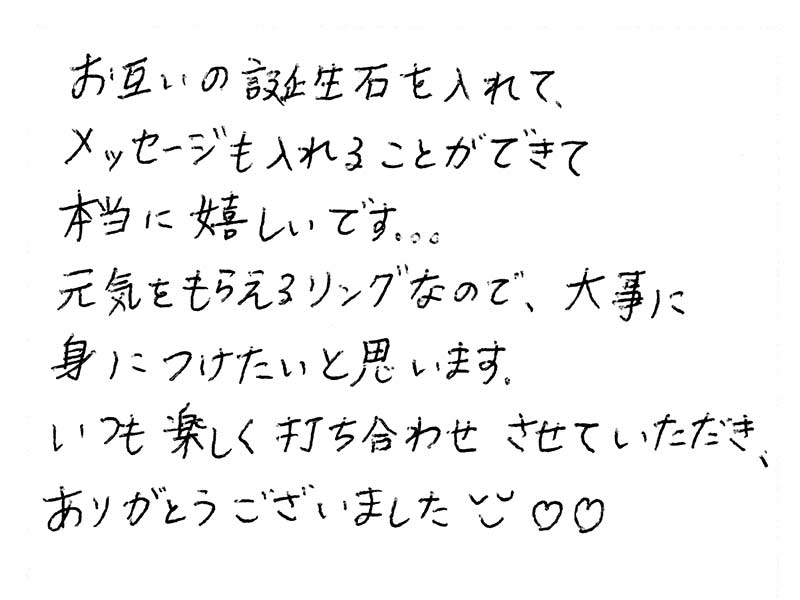 お互いの誕生石を入れて、
メッセージも入れることができて
本当に嬉しいです。。。
元気をもらえるリングなので、大事に
身につけたいと思います。
いつも楽しく打ち合わせさせていただき、
ありがとうございました ♡♡